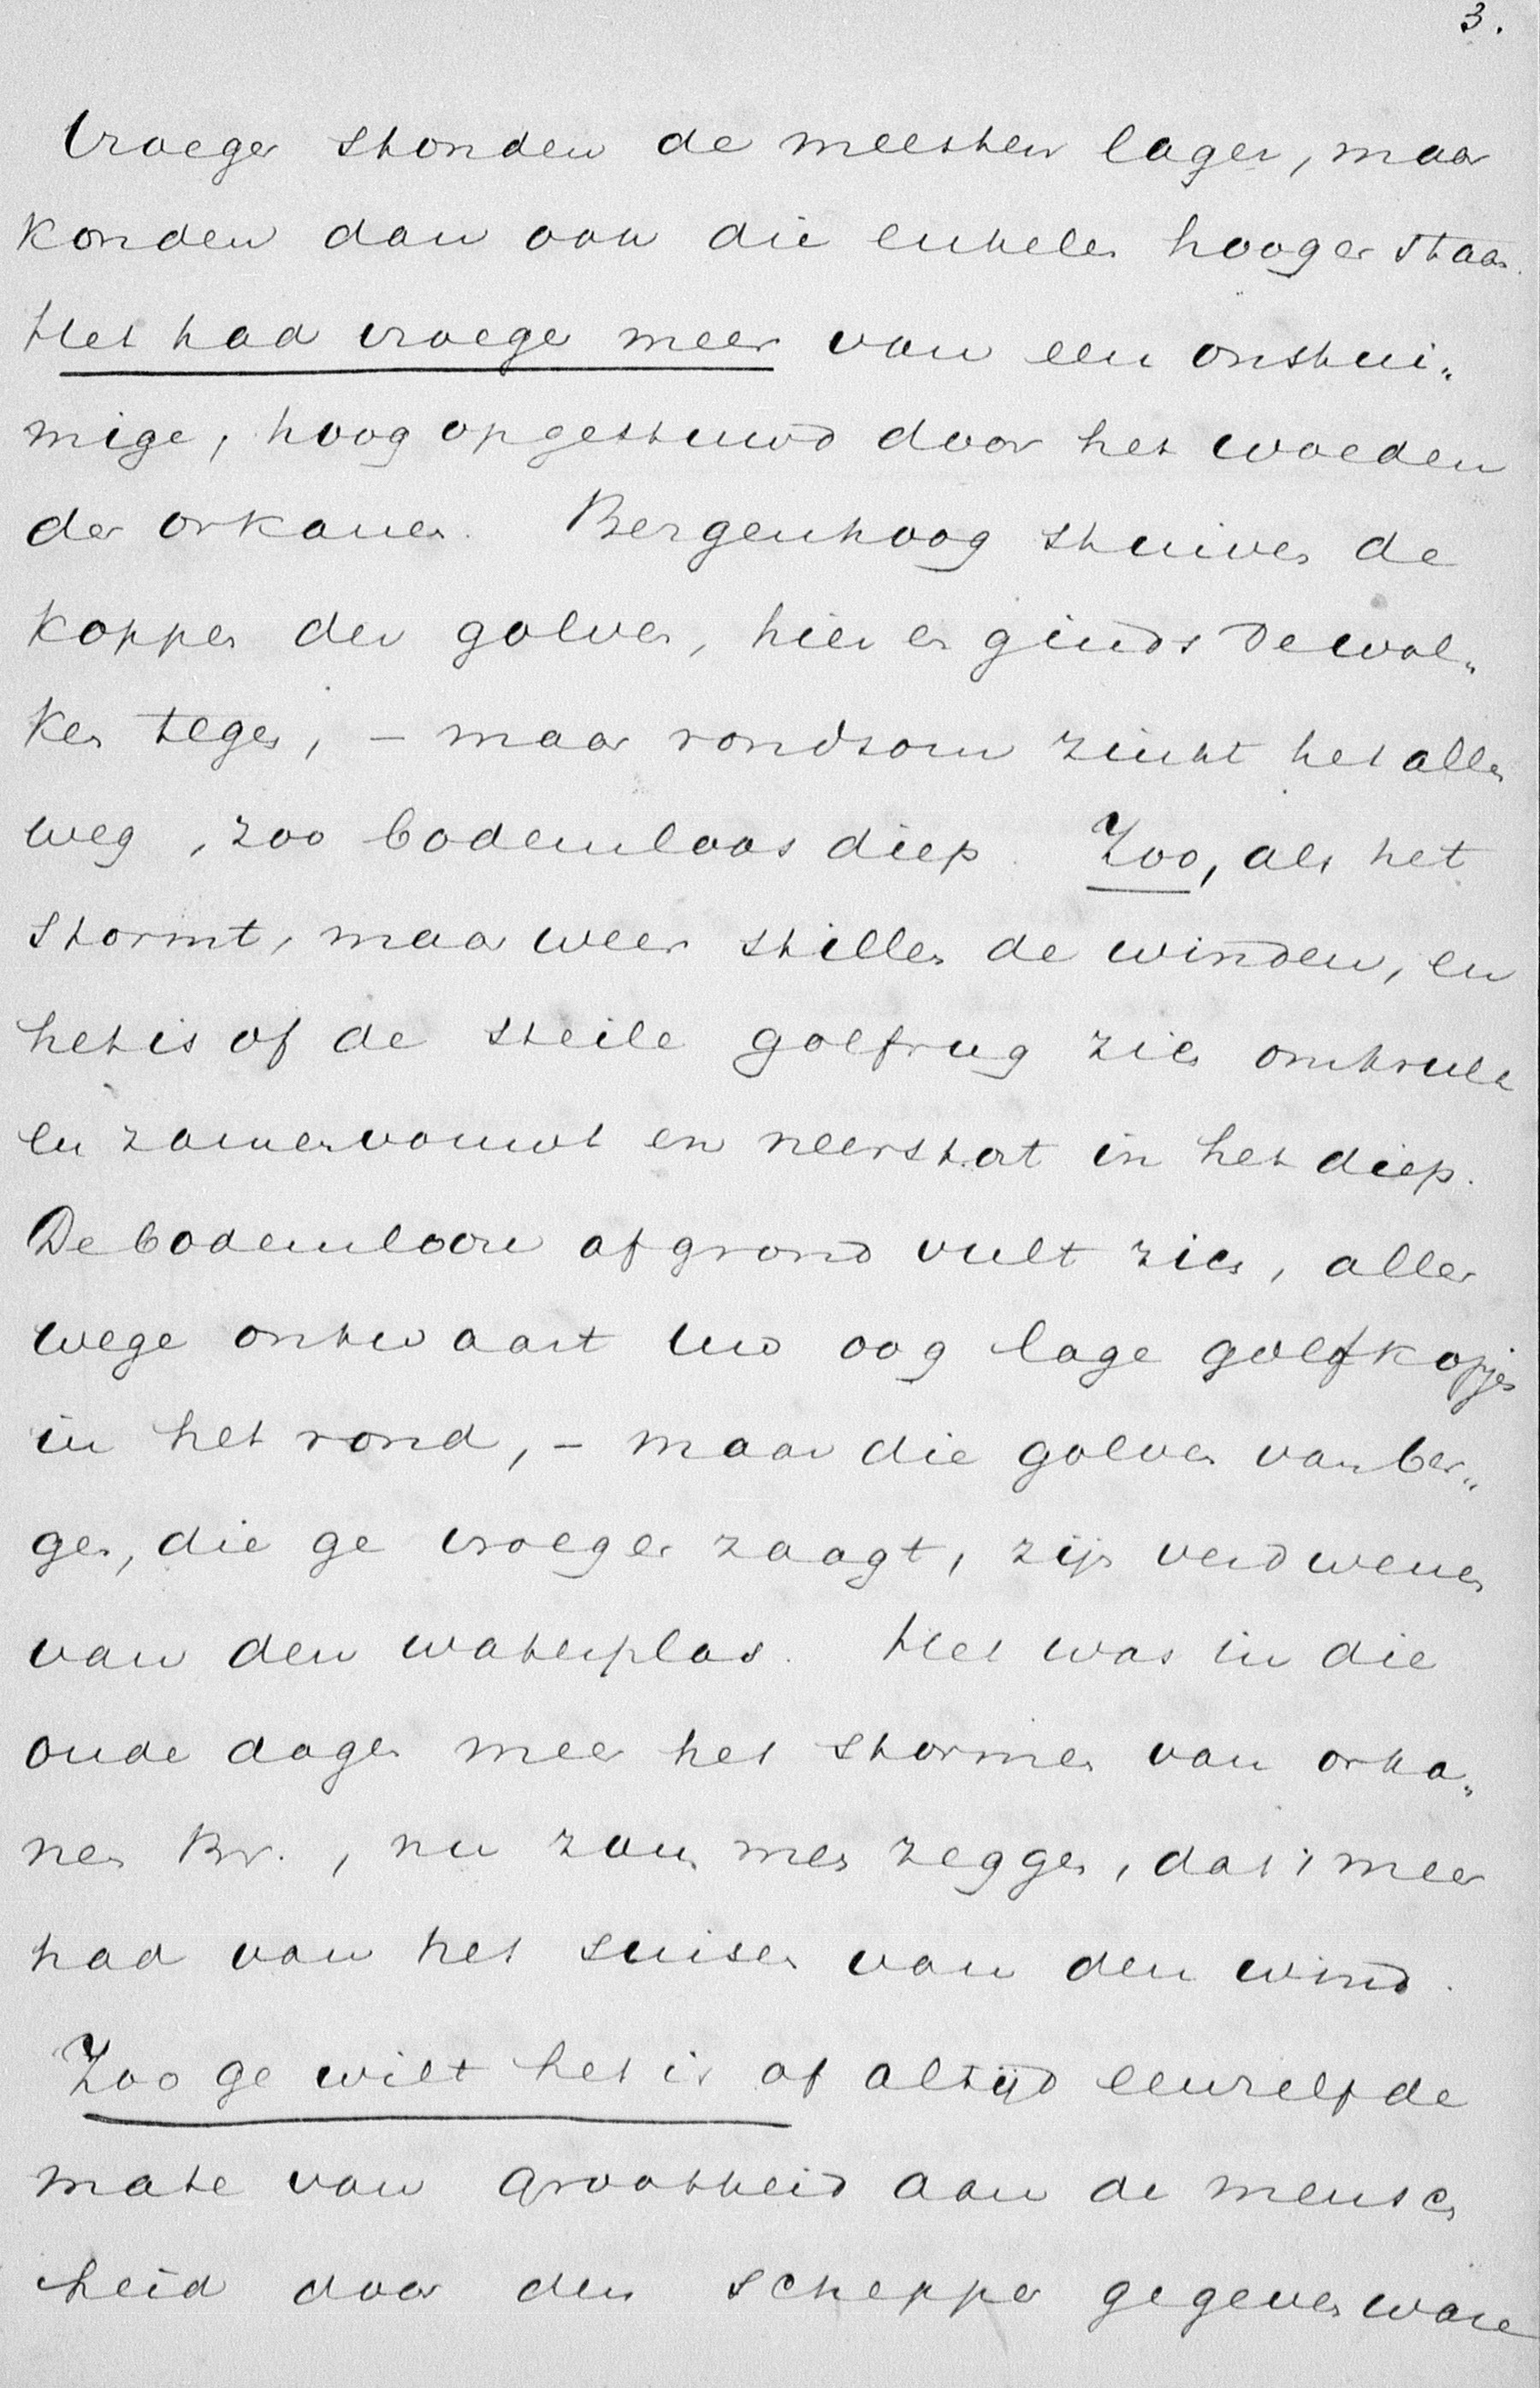 3.
Vroeger stonden de meesten lager, maar
konden dan ook die enkelen hooger staan.
Het had vroeger meer van een onstui„
mige, hoog opgestuwd door het woeden
der orkanen. Bergenhoog stuiven de
koppen der golven, hier en ginds de wol„
ken tegen, – maar rondsom zinkt het alles
weg, zoo bodemloos diep. Zoo, als het
stormt, maar weer stillen de winden, en
het is of de steile golfrug zich omkrult
en zamenvouwt en neerstort in het diep.
De bodemlooze afgrond vult zich, aller
wege ontwaart uw oog lage golfkopjes
in het rond, – maar die golven van ber„
gen, die ge vroeger zaagt, zijn verdwenen
van den waterplas. Het was in die
oude dagen meer het stormen van orka„
nen Br., nu zou men zeggen, dat 't meer
had van het suisen van den wind.
Zoo ge wilt het is of altijd eenzelfde
mate van grootheid aan de mensch
heid door den schepper gegeven ware